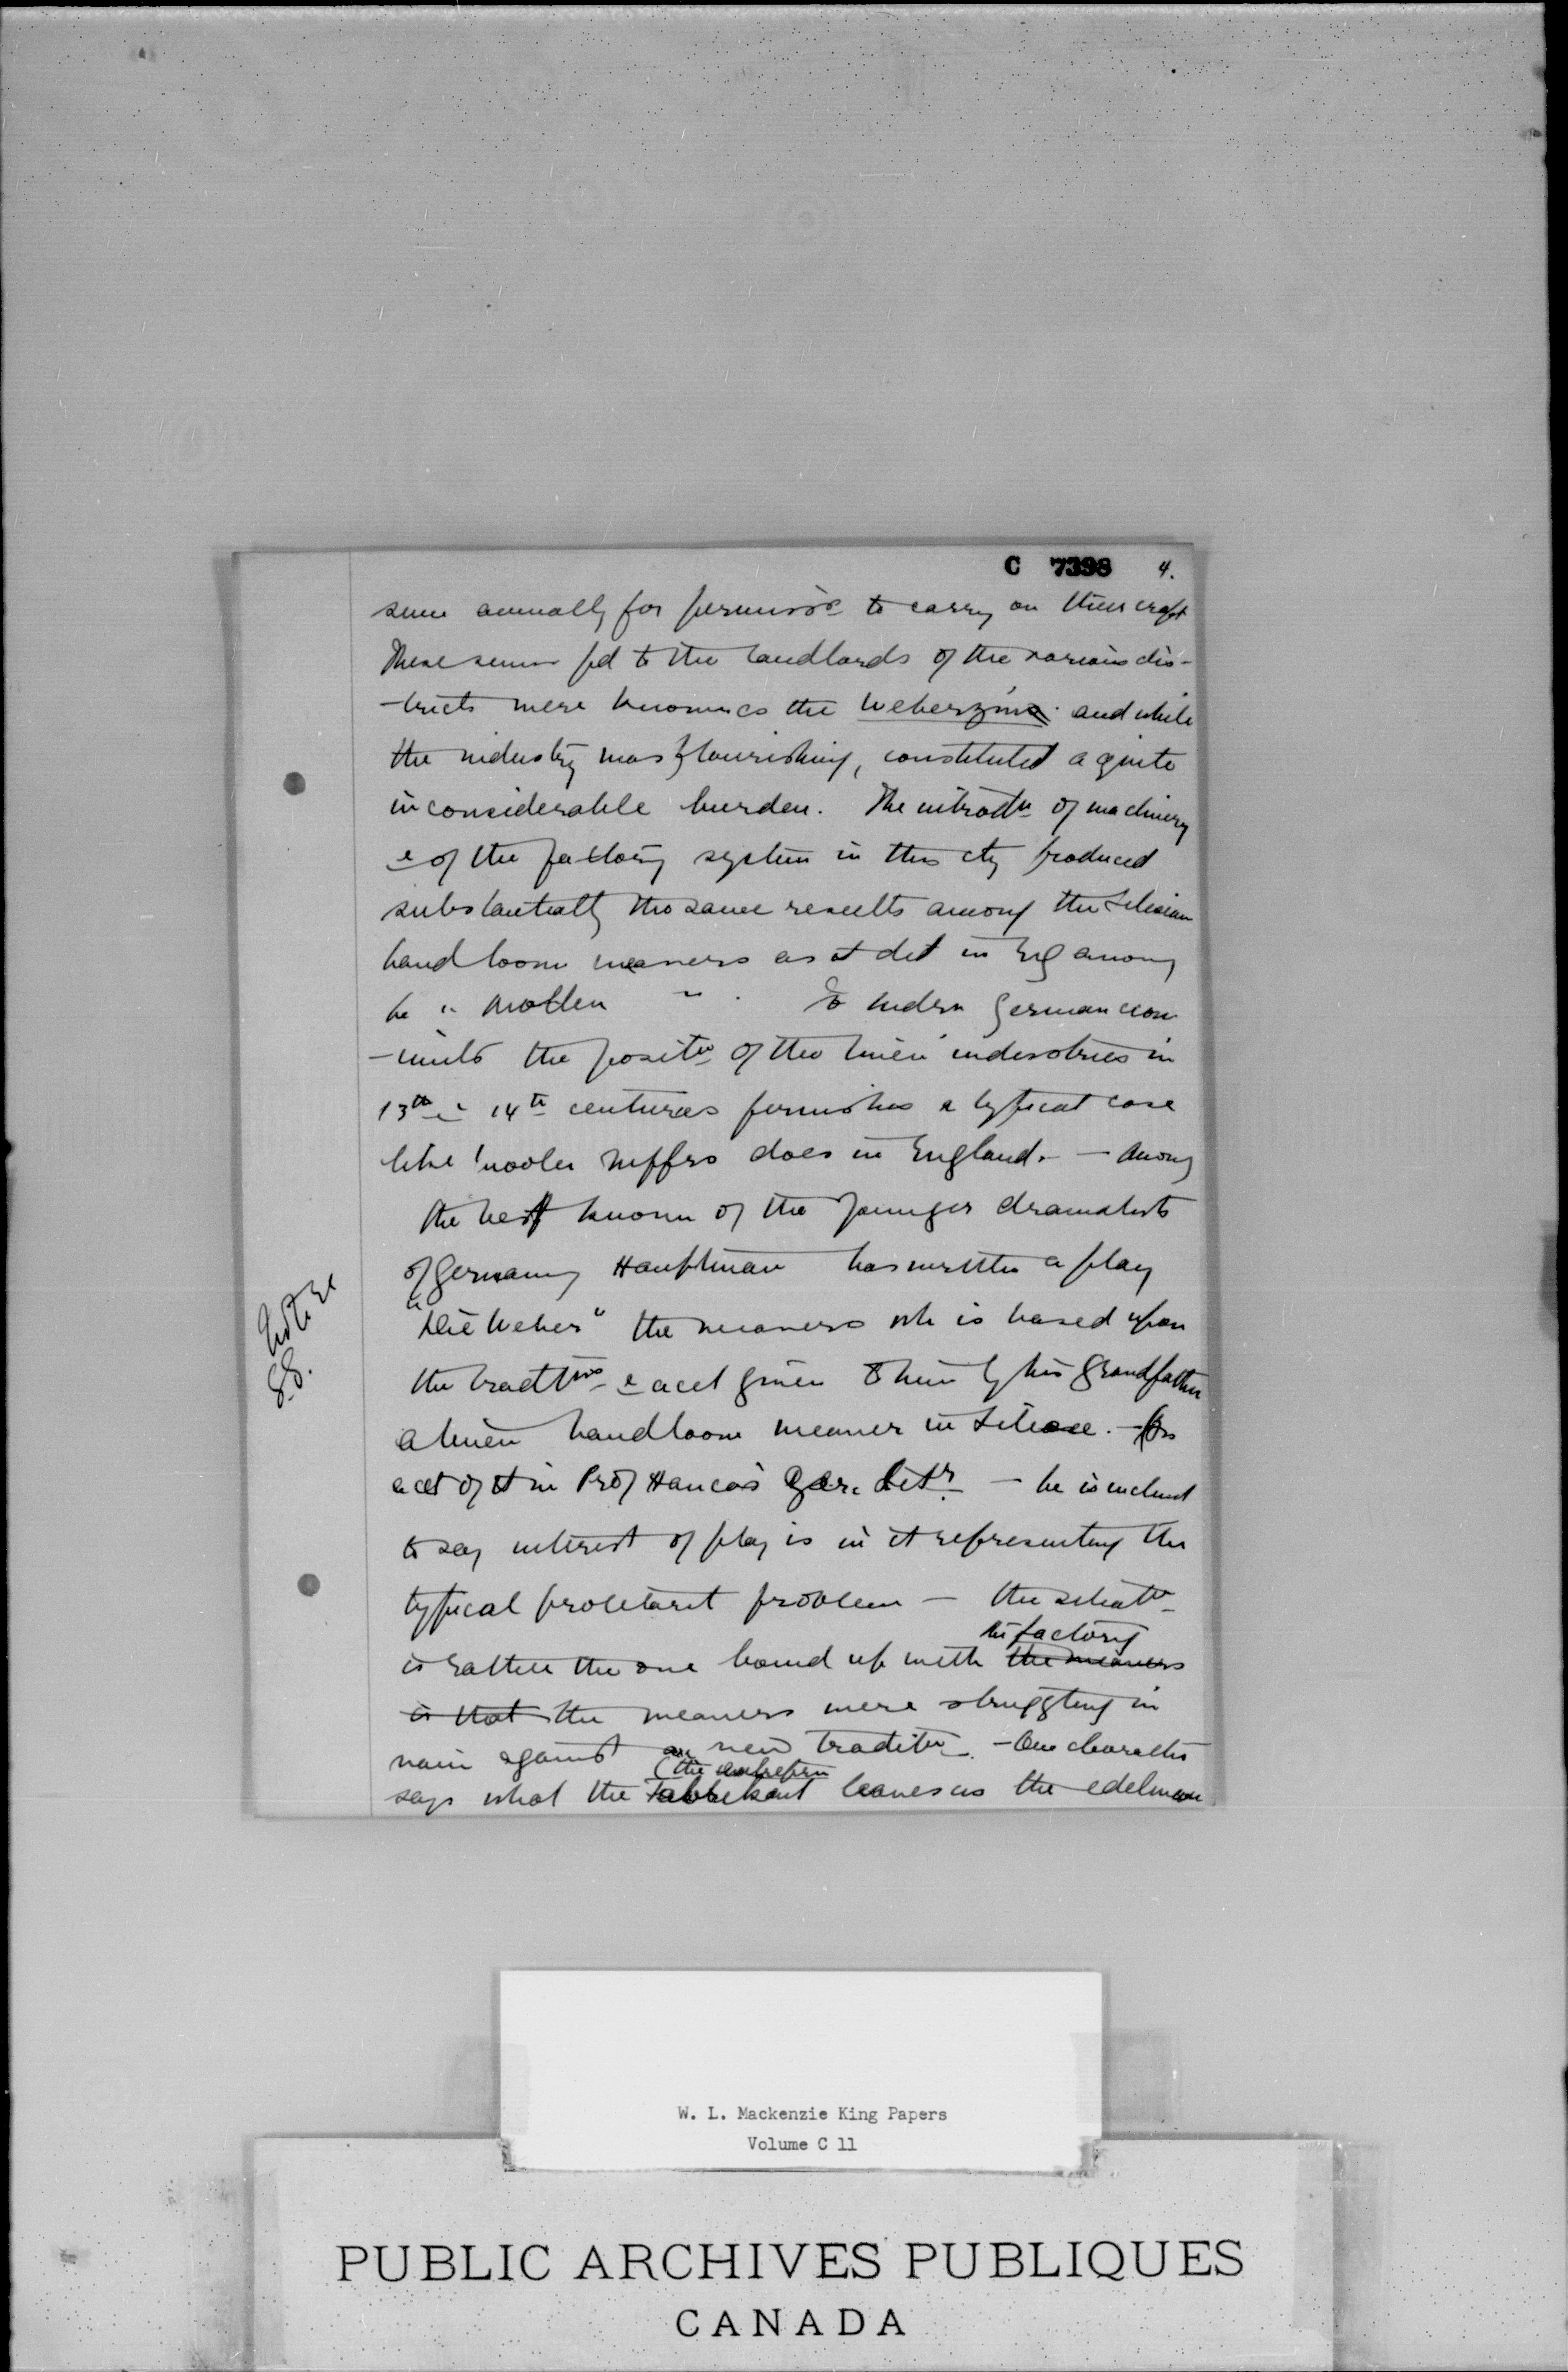 C 7398 4.
sum annually for permiss<sup>n</sup> to carry on their craft
These sums pd to the landlords of the various dis-
-tricts were known as the Weberzins and while
the industry was flourishing, constituted a quite
inconsiderable burden. The introdtn of machinery
& of the factory system in this cty produced
substantially the same results among the Silesian
hand loom weavers as it did in Eng among
he " woollen " . To modern German econ
-mists the positn of the linen industries in
13th & 14th centuries furnishes a typical case
like woolen does in England. — Among
the best known of the younger dramatists
of Germany Hauptman has written a play
"Die Weber" the weavers wh is based upon
the tradtns & acct given to him by his grandfather
a linen handloom weaver in Silesia. — for
acct of it in Prof Ger. Litr. — he is inclined
to say interest of play is in it representing the
typical proletariat problem — the situatn
the factory
is rather the one bound up with the weavers
is that the weavers were struggling in
vain against an new traditn. — One character
(the
says what the Fabrikant leaves us the edelman
Note Ex
S.S.
W. L. Mackenzie King Papers
Volume C 11
PUBLIC ARCHIVES PUBLIQUES
CANADA